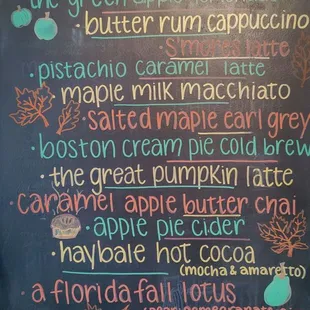 the green apple lemonade
butter rum cappuccino
s'mores latte
• pistachio caramel latte
maple milk macchiato
• salted maple earl grey
• boston cream pie cold brew
• the great pumpkin latte
caramel apple butter chai
• apple pie cider
• haybale hot cocoa
(mocha & amaretto)
a florida fall lotus